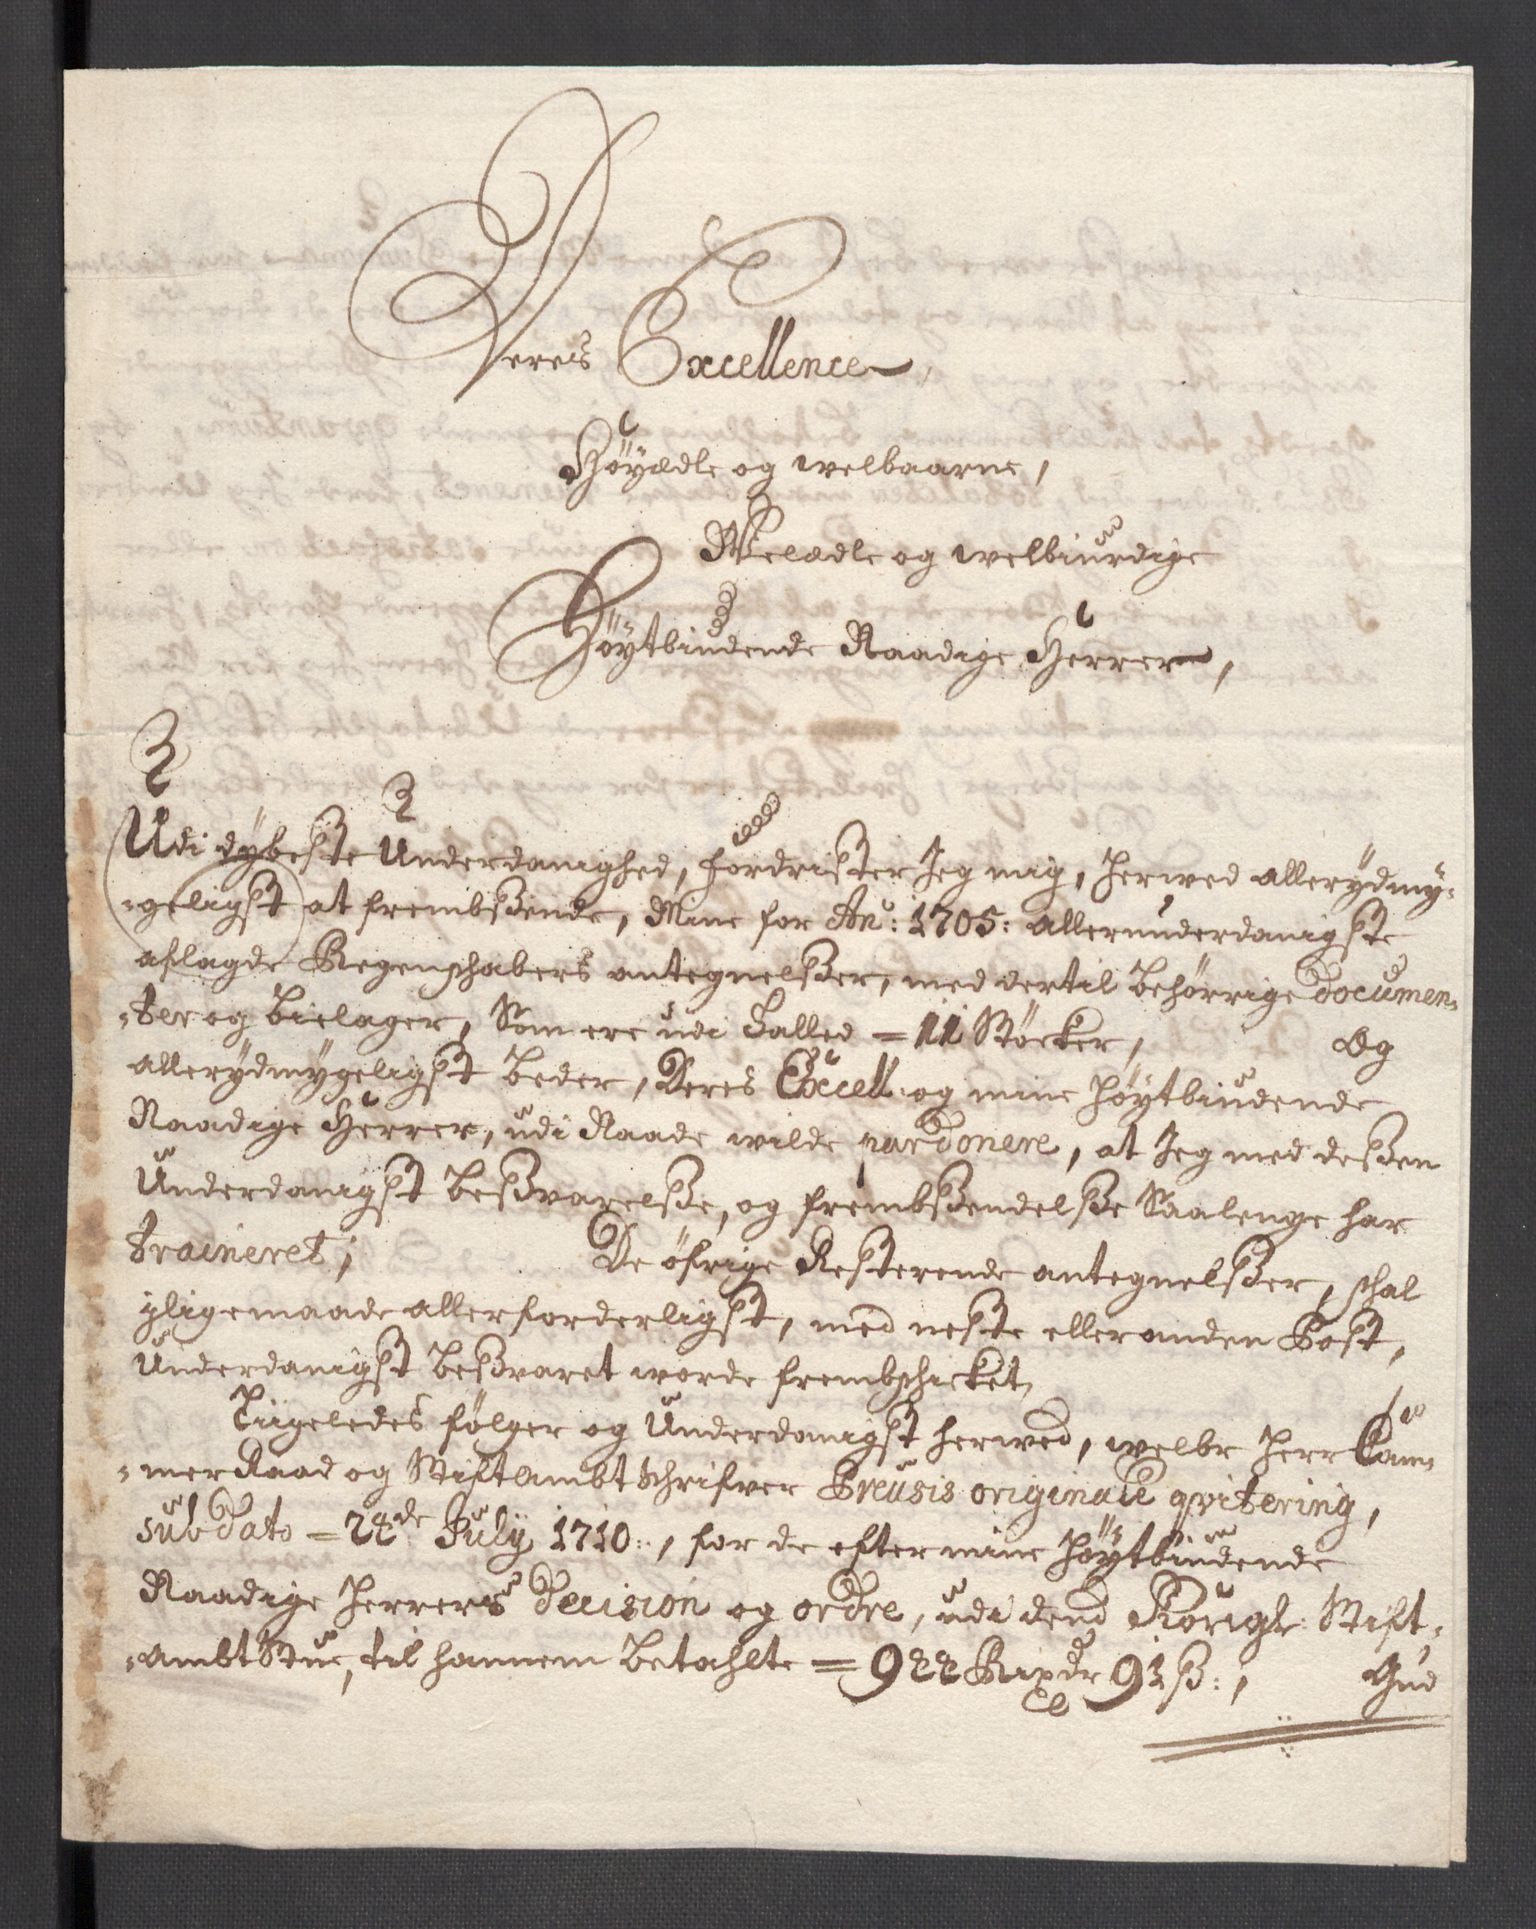 Deres Excellence,
Höÿædle og welbaarne,
Welædle og welbiurdige
Höÿtbiudende Raadige Herrer,
Udi dÿbeste Underdanighed, fordrister Jeg mig, herwed allerÿdmÿ-
-geligst at frembsende, Mine for An: 1705: allerunderdanigste
aflagde Regenschabers antegnelsser, med dertil behörrige documen-
-ter og bielager, Som ere udi Talled = 11 Støcker, Og
allerÿdmÿgeligst beder, Deres Excell: og mine höÿtbiudende
Raadige Herrer, udi Naade wilde pardonere, at Jeg med dessen
Underdanigst bessvarelsse, og frembssendelsse Saalenge har
traineret; De öfrige Resterende antegnelsser, schal
ÿligemaade allerforderligst, med neste eller anden Post,
Underdanigst bessvaret worde frembschicket,
Liigeledes følger og Underdanigst herwed, welbr Herr Cam-
-mer Raad og Stiftambtschrifver Preusis originale qvitering,
sub dato = 22de July 1710:, for de efter mine höÿtbiudende
Raadige Herrers decision og ordre, udi dend Kongl: Stift-
-ambt Stue, til hannem betahlte = 922 Rixdr 91 ß:, Gud